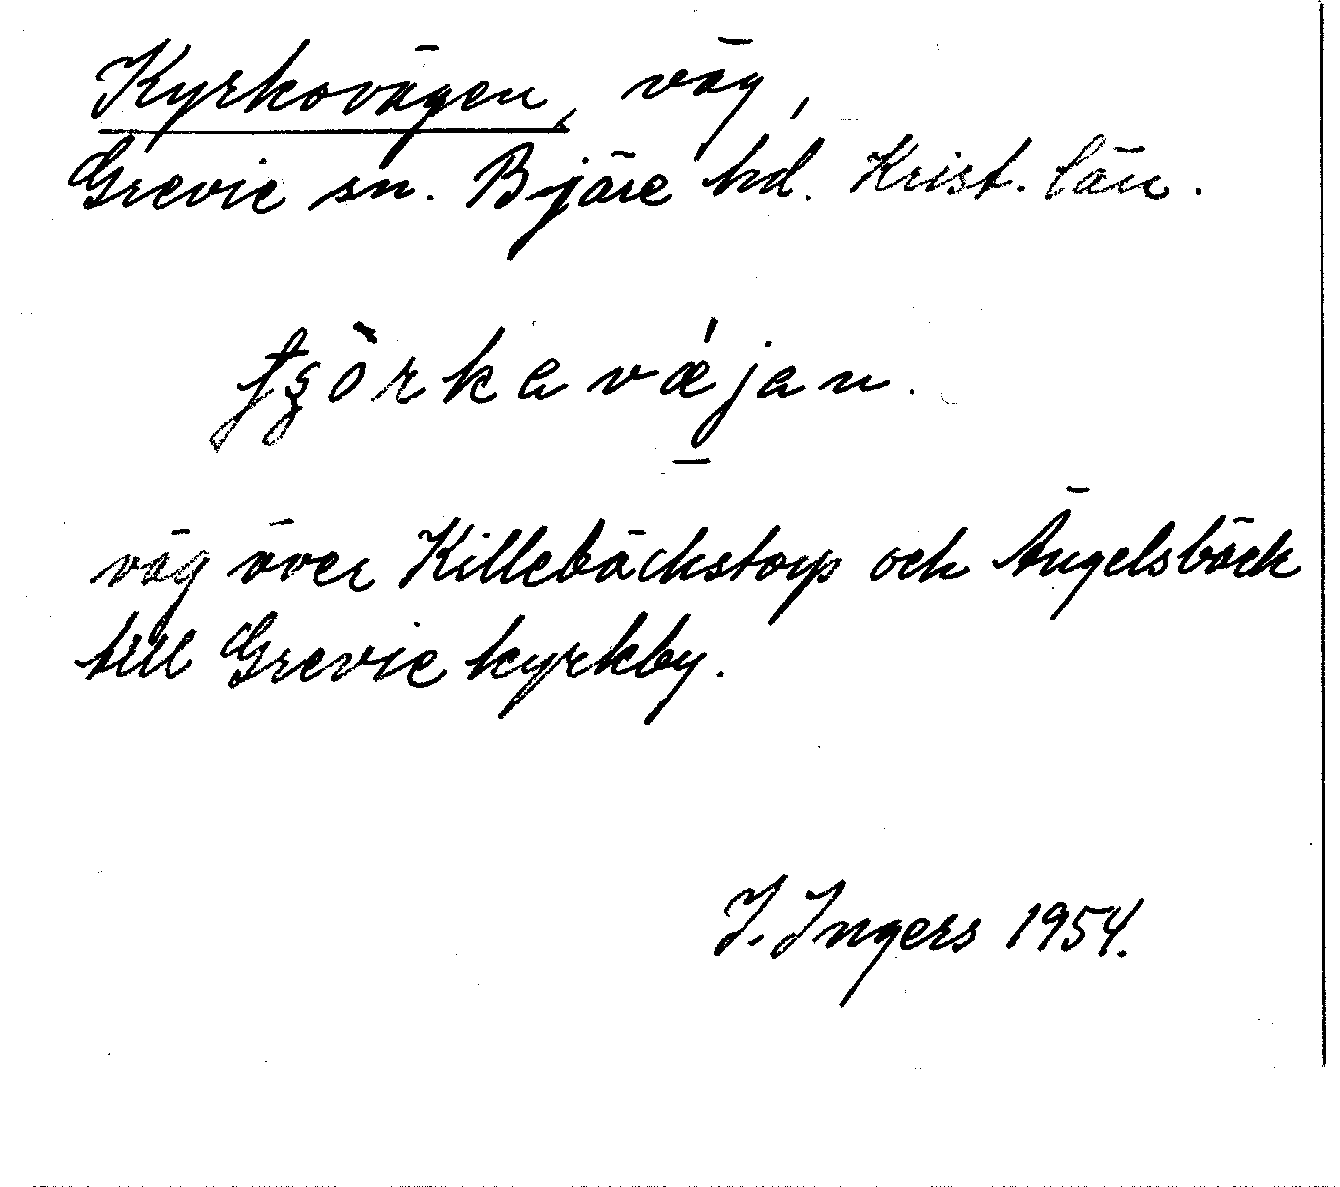 Kyrkovägen, väg,
Grevie sn. Bjäre hd. Krist. län.
väg över Killebäckstorp och Ängelsbäck
till Grevie kyrkby.
I. Ingers 1954.